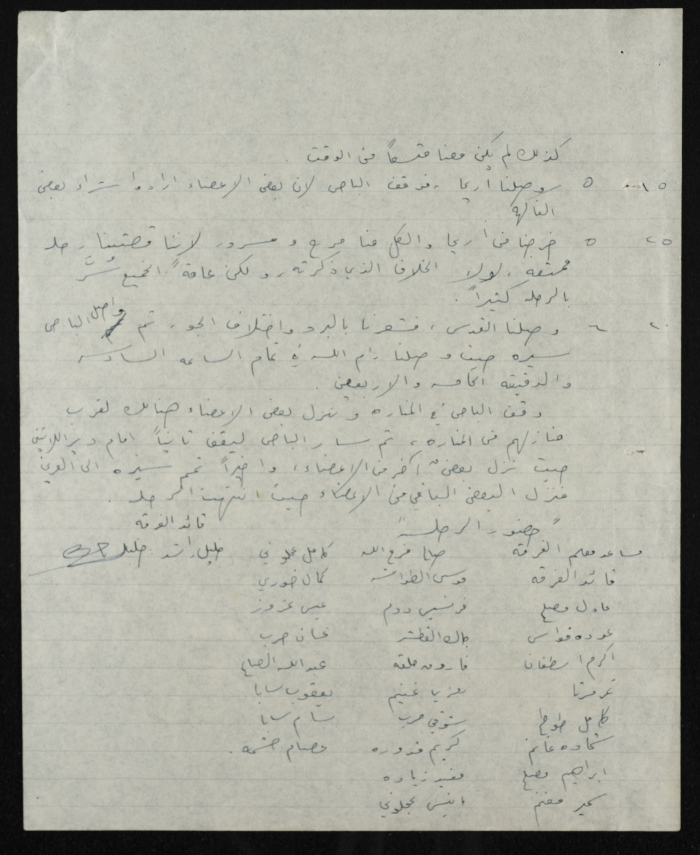 كذلك لم يكن معنا متسعاً من الوقت .
٥ وصلنا أريحا ، فوقف الباص لان بعض الاعضاء ارادوا شراء بعض
الفاكهة
٢٥ ٥ خرجنا من أريحا والكل منا فرح و مسرور لاننا قضينا رحلة
ممتعة ، لولا الخلاف الذي ذكرته ، ولكن عامةً الجميع سُرَّ
بالرحلة كثيراً .
٦ وصلنا القدس ، فشعرنا بالبرد واختلاف الجو ، ثم واصل الباص
سيره حيث وصلنا رام الله في تمام الساعه السادسه
والدقيقة الخامسه والاربعين .
وقف الباص في المناره و نزل بعض الاعضاء هنالك لقرب
منازلهم من المناره ، ثم سار الباص ليقف ثانياً امام دير اللاتين
حيث نزل بعضٌ آخر من الاعضاء ، واخيراً تمم سيره الى
فنزل البعض الباقي من الاعضاء حيث انتهت الرحلة .
قائد الفرقه
" حضور الرحلة "
مساعد معلم الفرقة حنا فرج الله كامل عجلوني خليل راشد خليل
قائد الفرقه موسى الطوالشه كمال خوري
عادل مصلح فرنسيس ددم عيسى عزوز
عوده قواس غسان حرب
اكرم اسطفان فاروق حلقه عبدالله الصاع
يعقوب سابا
كامل طوطح شوقي حرب سام سابا
شحاده غانم كريم قدوره عصام حشمه .
ابراهيم مصلح مفيد زياده
سمير مغنم انيس عجلوني